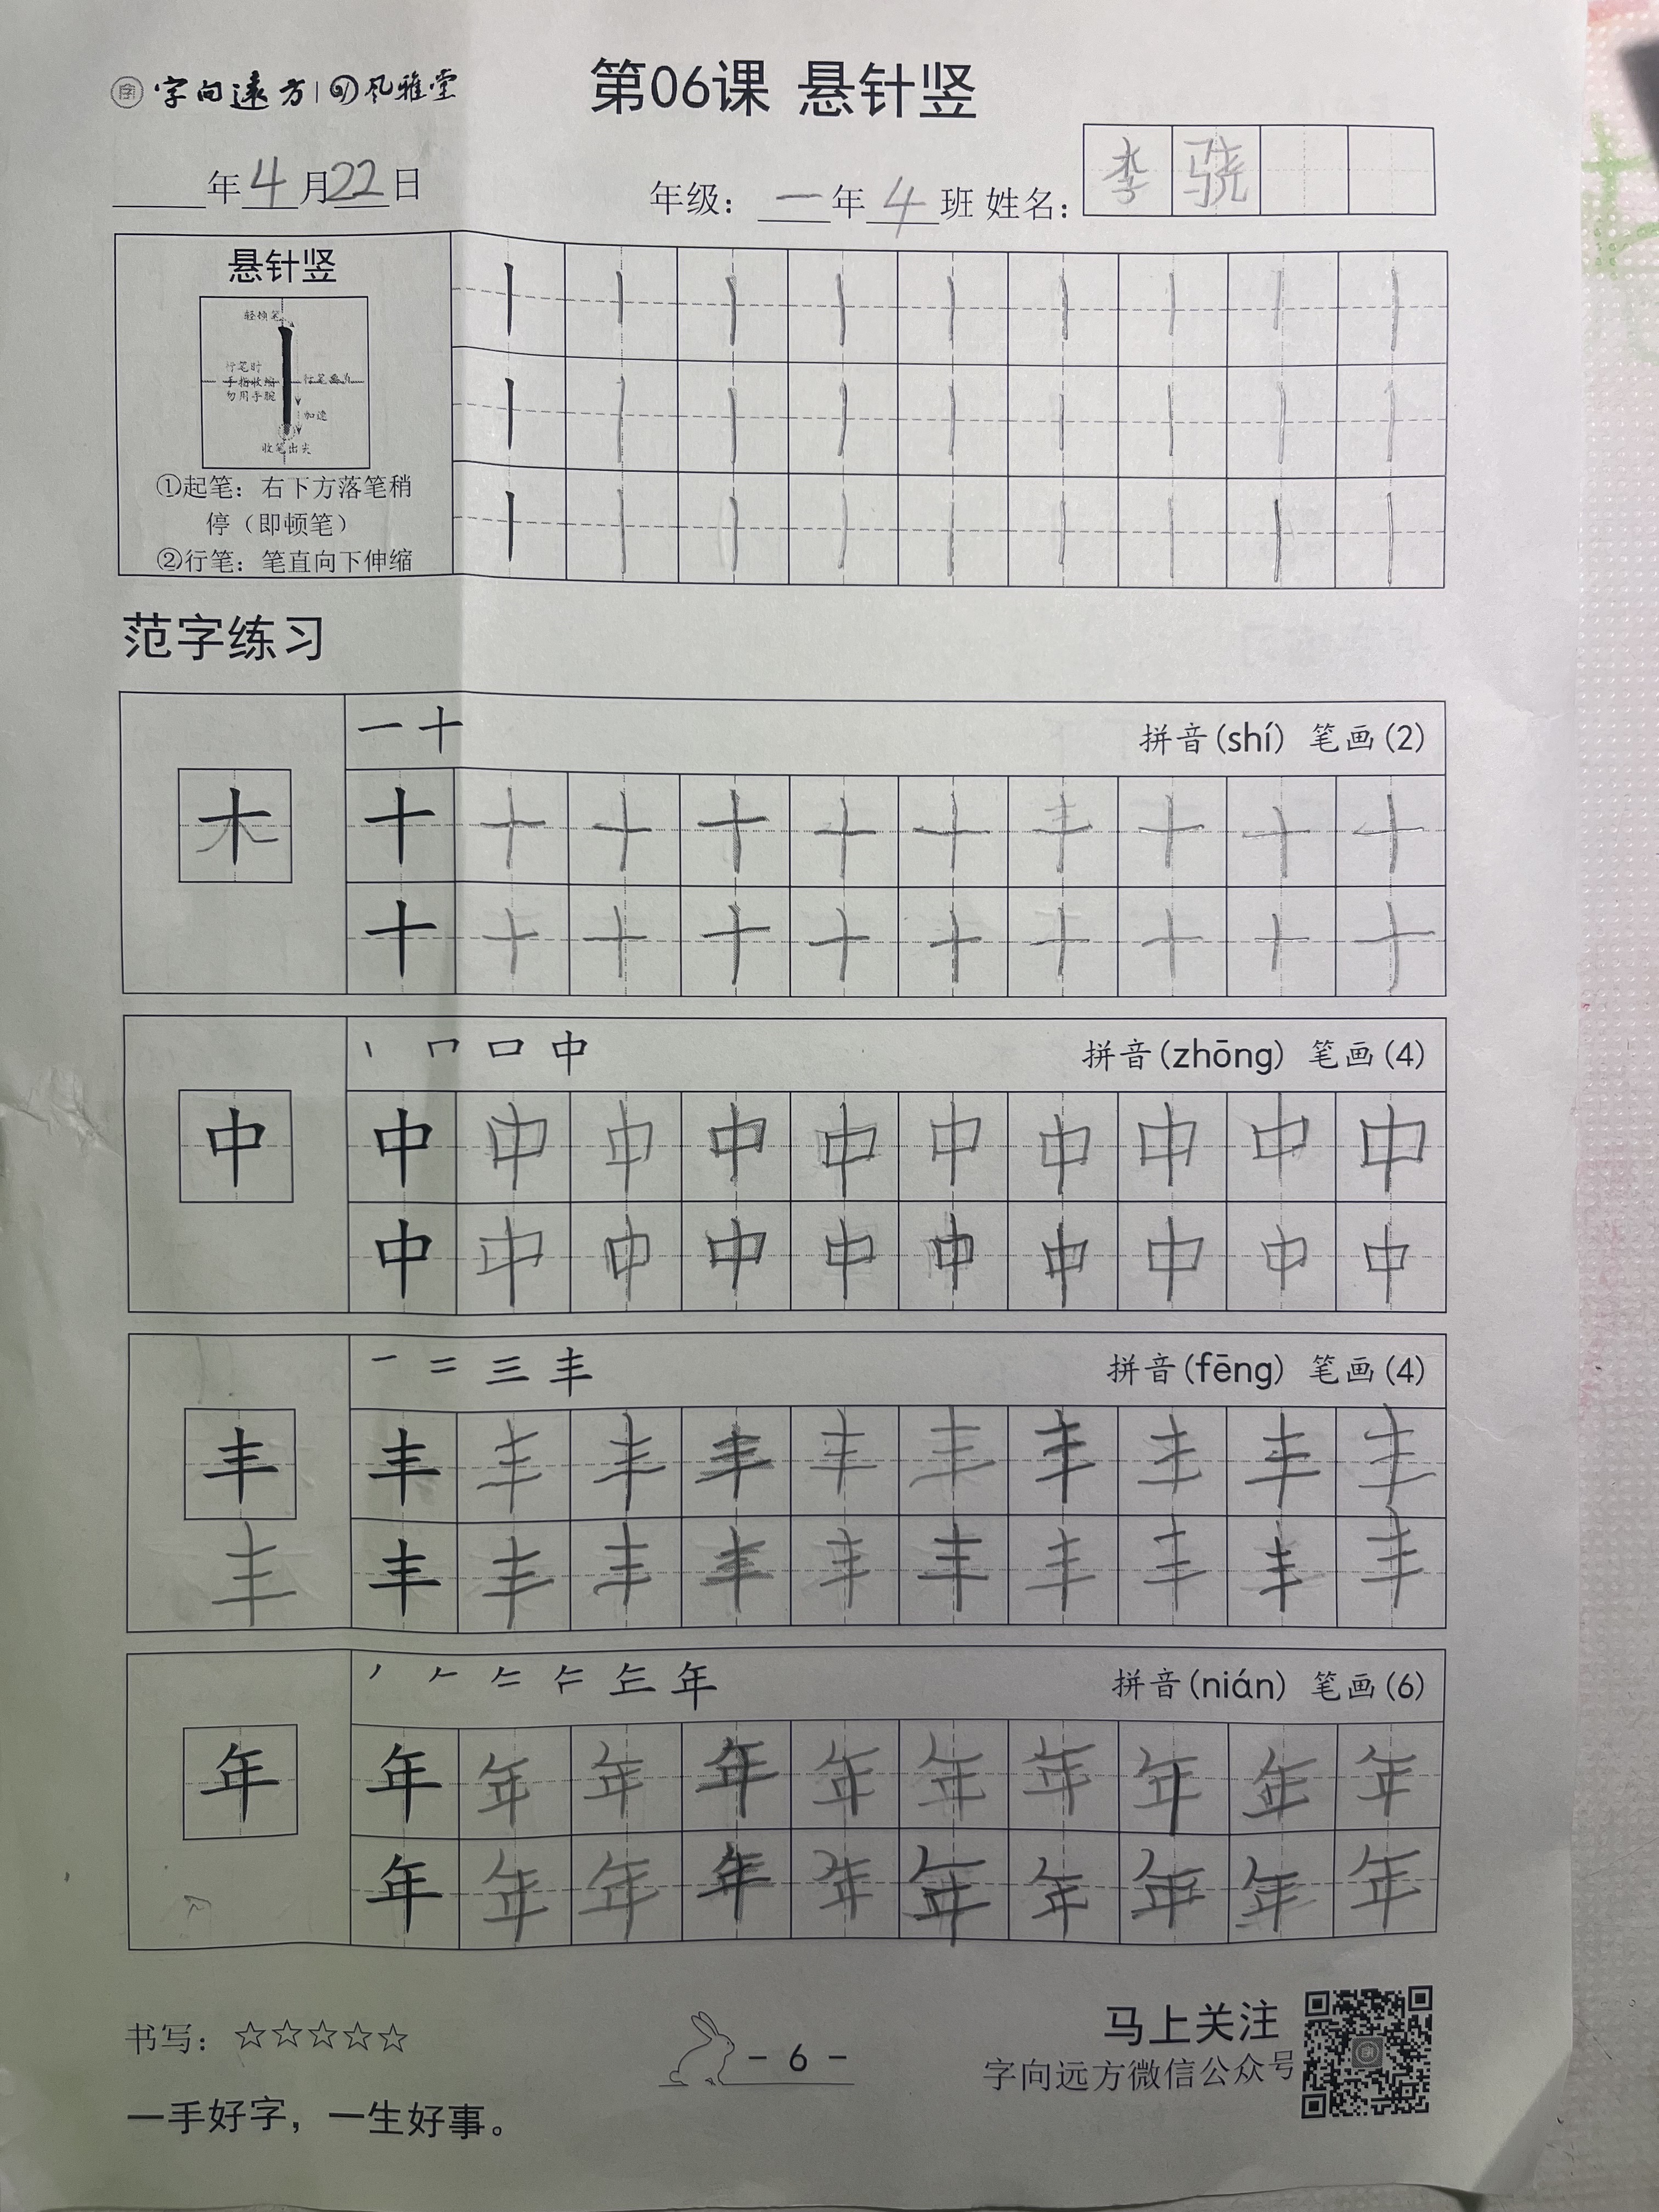 字向遠方 | 风雅堂
第06课 悬针竖
年4月22日
年级：一年4班 姓名：李骁
悬针竖
轻顿笔
行笔时
手指收缩
勿用手腕
加速
收笔出尖
①起笔：右下方落笔稍
停（即顿笔）
②行笔：笔直向下伸缩
范字练习
一 十 拼音(shí) 笔画(2)
木 十 十 十 十 十 十 十 十 十 十
十 十 十 十 十 十 十 十 十 十
丨 𠃍 口 中 拼音(zhōng) 笔画(4)
中 中 中 中 中 中 中 中 中 中 中
中 中 中 中 中 中 中 中 中 中
一 二 三 丰 拼音(fēng) 笔画(4)
丰 丰 丰 丰 丰 丰 丰 丰 丰 丰 丰
丰 丰 丰 丰 丰 丰 丰 丰 丰 丰 丰
年 拼音(nián) 笔画(6)
年 年 年 年 年 年 年 年 年 年 年
年 年 年 年 年 年 年 年 年 年
书写：☆☆☆☆☆
- 6 -
马上关注
字向远方微信公众号
一手好字，一生好事。